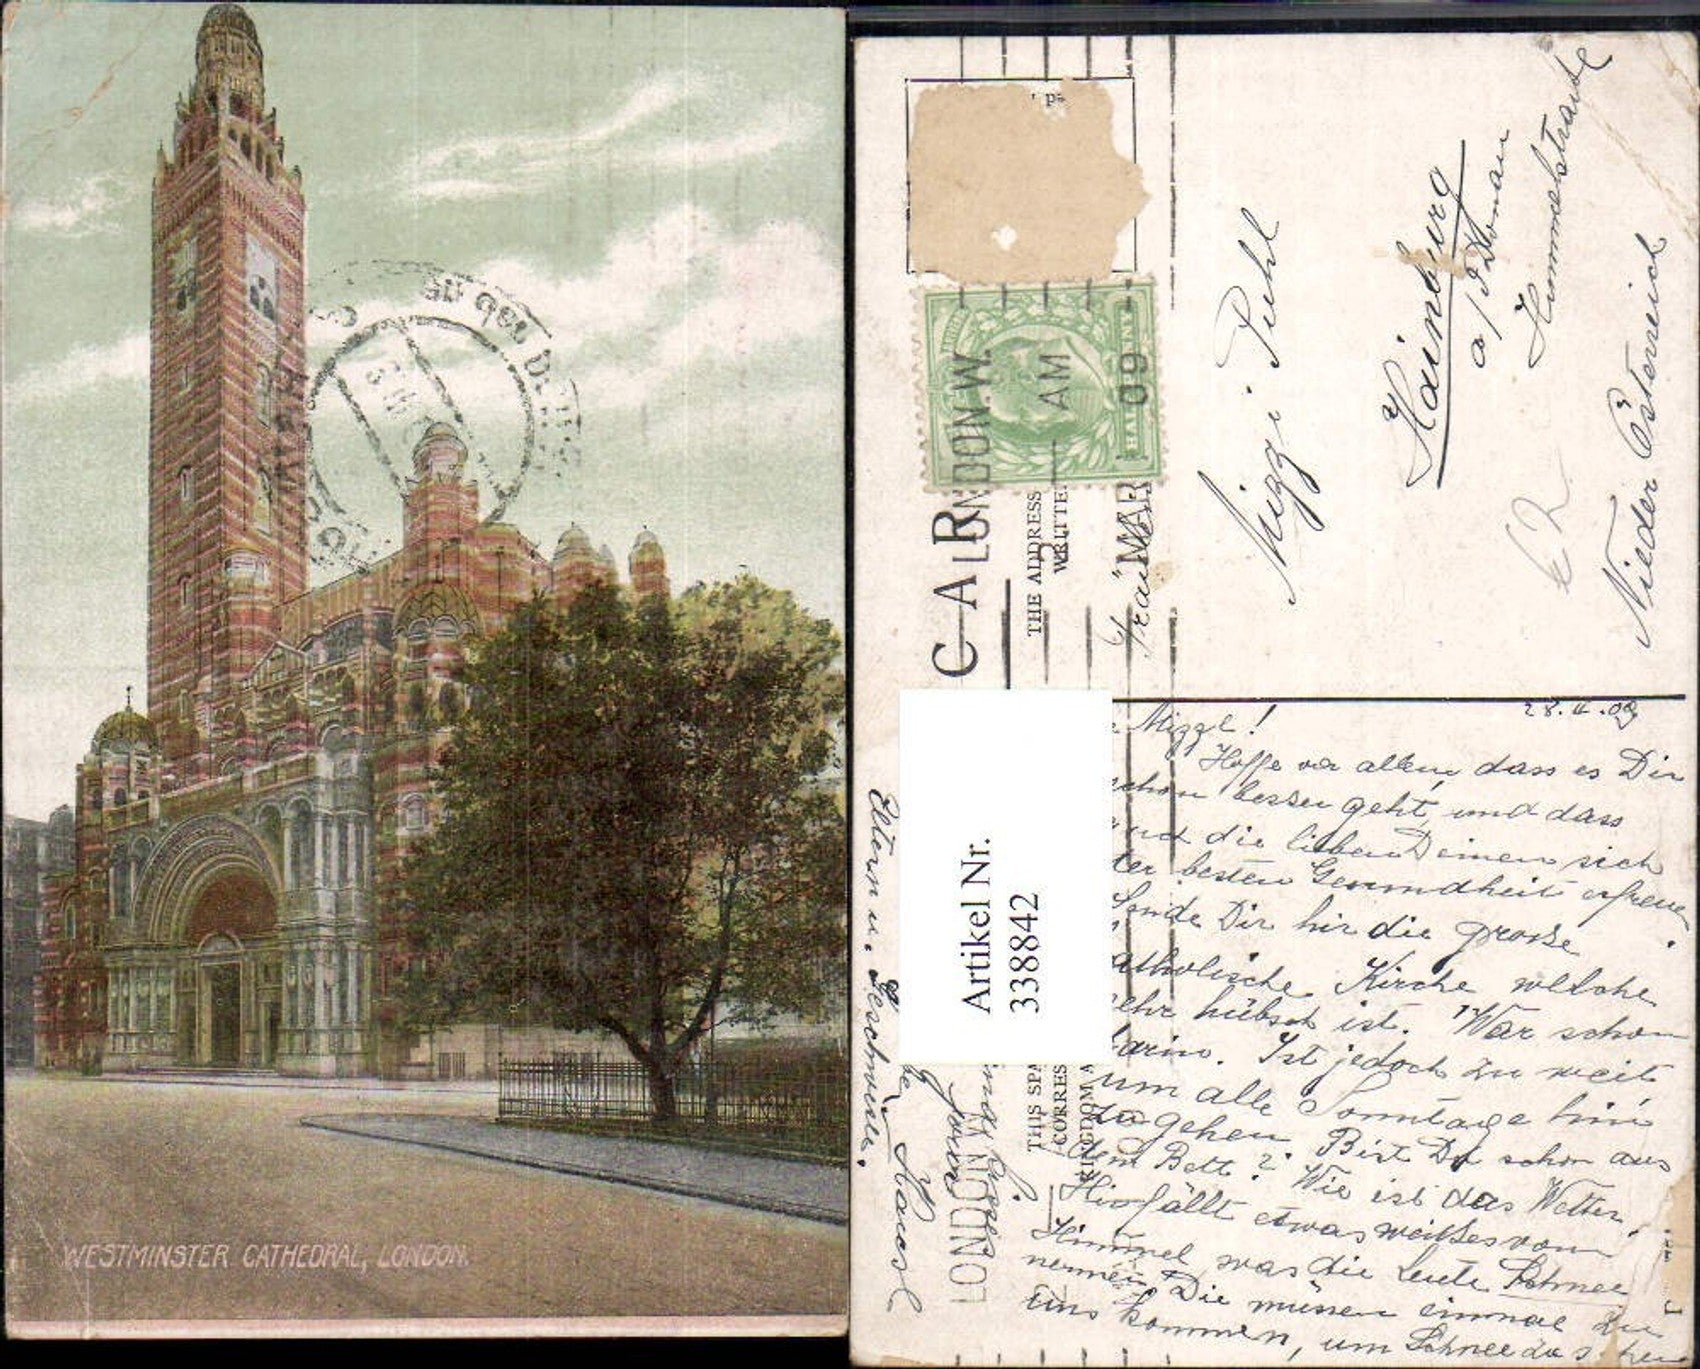 WESTMINSTER CATHEDRAL, LONDON.
CAR
THE ADDRESS
WRITTE
LONDON.W.
AM
MAR 09
HALFPENNY
Fräulein
Mizzi Puhl
Hainburg
a/d Donau
Hummelstraße
Nieder Österreich
Artikel Nr.
338842
THIS SPA
CORRES
KINGDOM A
LONDON
28.II.09
Mizzl!
Hoffe vor allem, dass es Dir
schon besser geht, und dass
und die lieben Deinen sich
der besten Gesundheit erfreuen.
Sende Dir hir die große
katholische Kirche welche
sehr hübsch ist. War schon
darin. Ist jedoch zu weit
um alle Sonntage hin
zu gehen. Bist Du schon aus
dem Bett? Wie ist das Wetter.
Hir fällt etwas weißes vom
Himmel was die Leute Schnee
nennen. Die müssen einmal zu
uns kommen, um Schnee zu sehen
Eltern u. Geschwister.